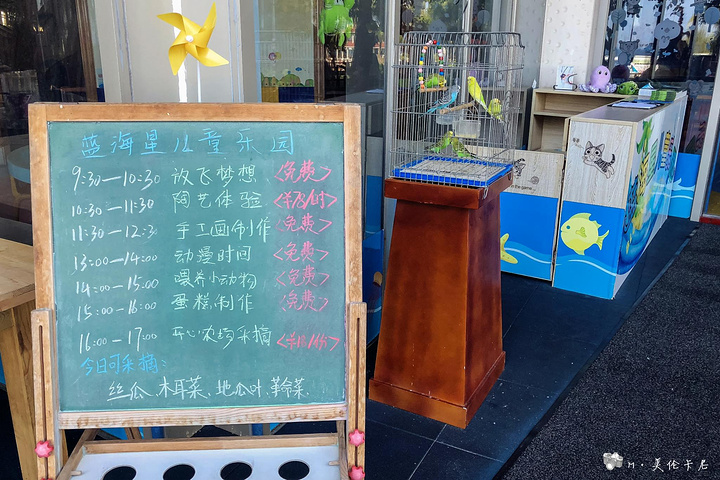 蓝海星儿童乐园
9:30—10:30 放飞梦想 <免费>
10:30—11:30 陶艺体验
11:30—12:3 手工画制作 <免费>
13:00—14:00 动漫时间 <免费>
14:00—15:00 喂养小动物 <免费>
15:00—16:00 蛋糕制作 免费>
16:00—17:00 开心农场采摘
今日可采摘:
丝瓜、木耳菜、地瓜叶、革命菜
M·美伦卡居